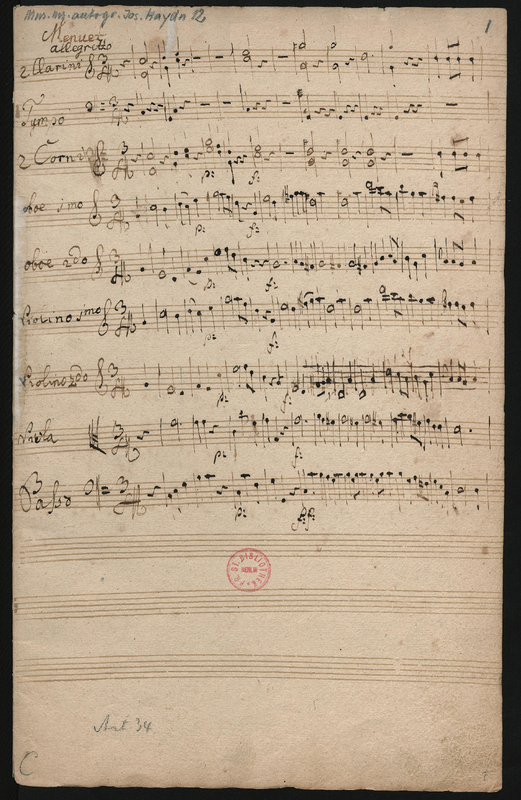 Mus. ms. autogr. Jos. Haydn 12
1
Menuet
allegretto
2 Clarini
Tympo
2 Corni
p:
f:
oboe imo
p:
f:
oboe 2do
p:
f:
Violino imo
p:
f:
Violino 2do
p:
f:
Viola
p:
f:
Basso
p:
BIBLIOTHEK
BERLIN
34
C